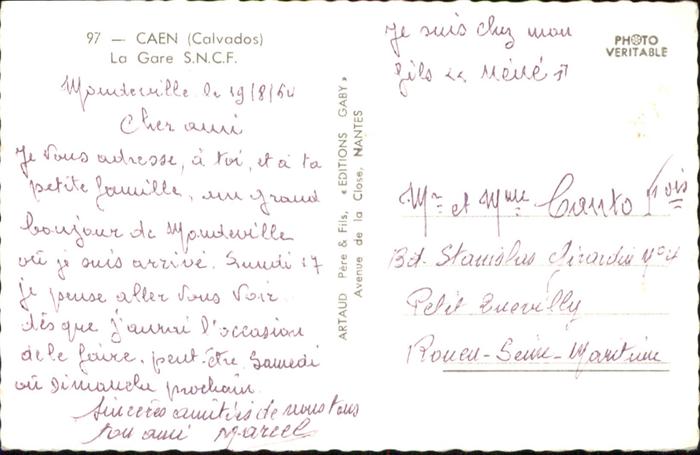 97 — CAEN (Calvados)
La Gare S.N.C.F.
Mondeville le 19/8/60
Cher ami
Je vous adresse, à toi, et à ta
petite famille, un grand
bonjour de Mondeville
où je suis arrivé. Lundi 17
je pense aller vous voir
dès que j'aurai l'occasion
de le faire, peut-être Samedi
où Dimanche prochain.
Sincères amitiés de nous tous
ton ami Marcel
ARTAUD Père & Fils, « EDITIONS GABY »
Avenue de la Close, NANTES
Je suis chez mon
fils
PHOTO
VERITABLE
Mr et Mme Canto
Bd. Stanislas Girardin
Petit Quevilly
Rouen-Seine-Maritime